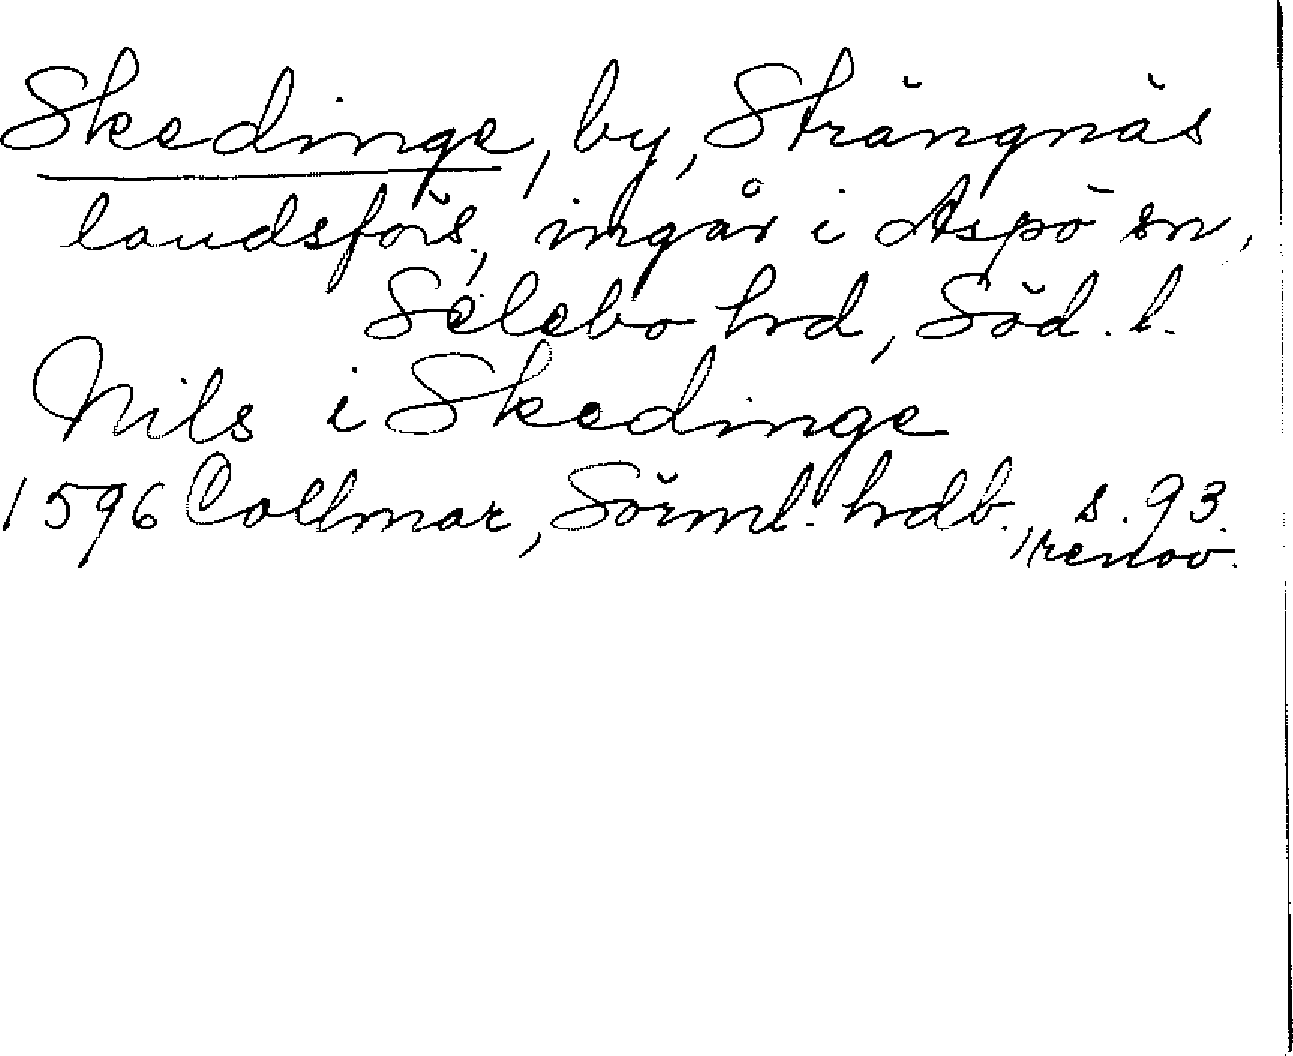 Skedinge, by, Strängnäs
landsförs, ingår i Aspö sn,
Selebo hrd, Söd. l.
Nils i Skedinge
1596 Collmar, Sörml. hrdb., s. 93.
renov.